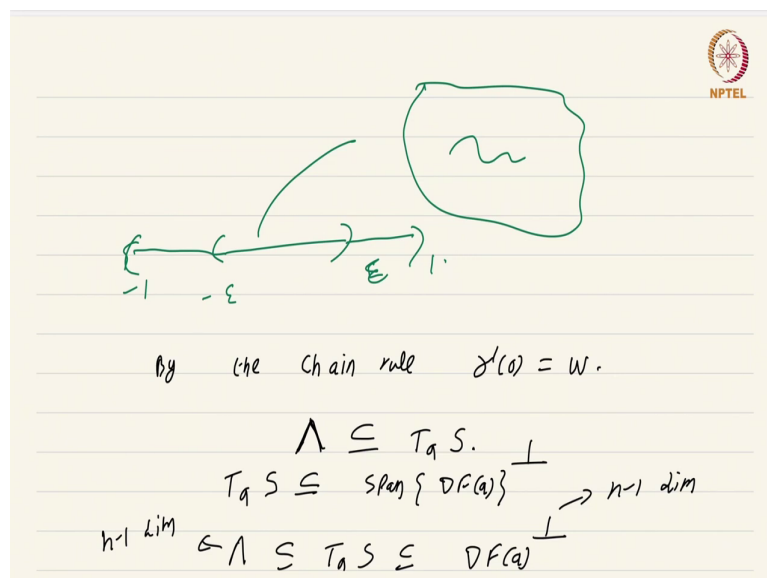 NPTEL
-1 -ε ε 1.
By the Chain rule γ'(0) = w.
Λ ⊆ T_a S.
T_a S ⊆ span{ DF(a)}^⊥ → n-1 dim
n-1 dim ← Λ ⊆ T_a S ⊆ DF(a)^⊥